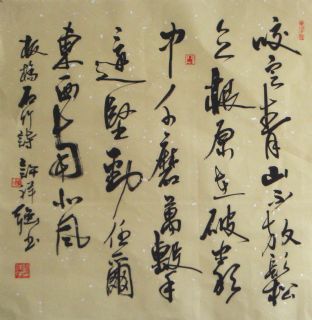 咬定青山不放鬆
立根原在破岩
中千磨萬擊
還堅勁任爾
東西南北風
板橋石竹詩許書